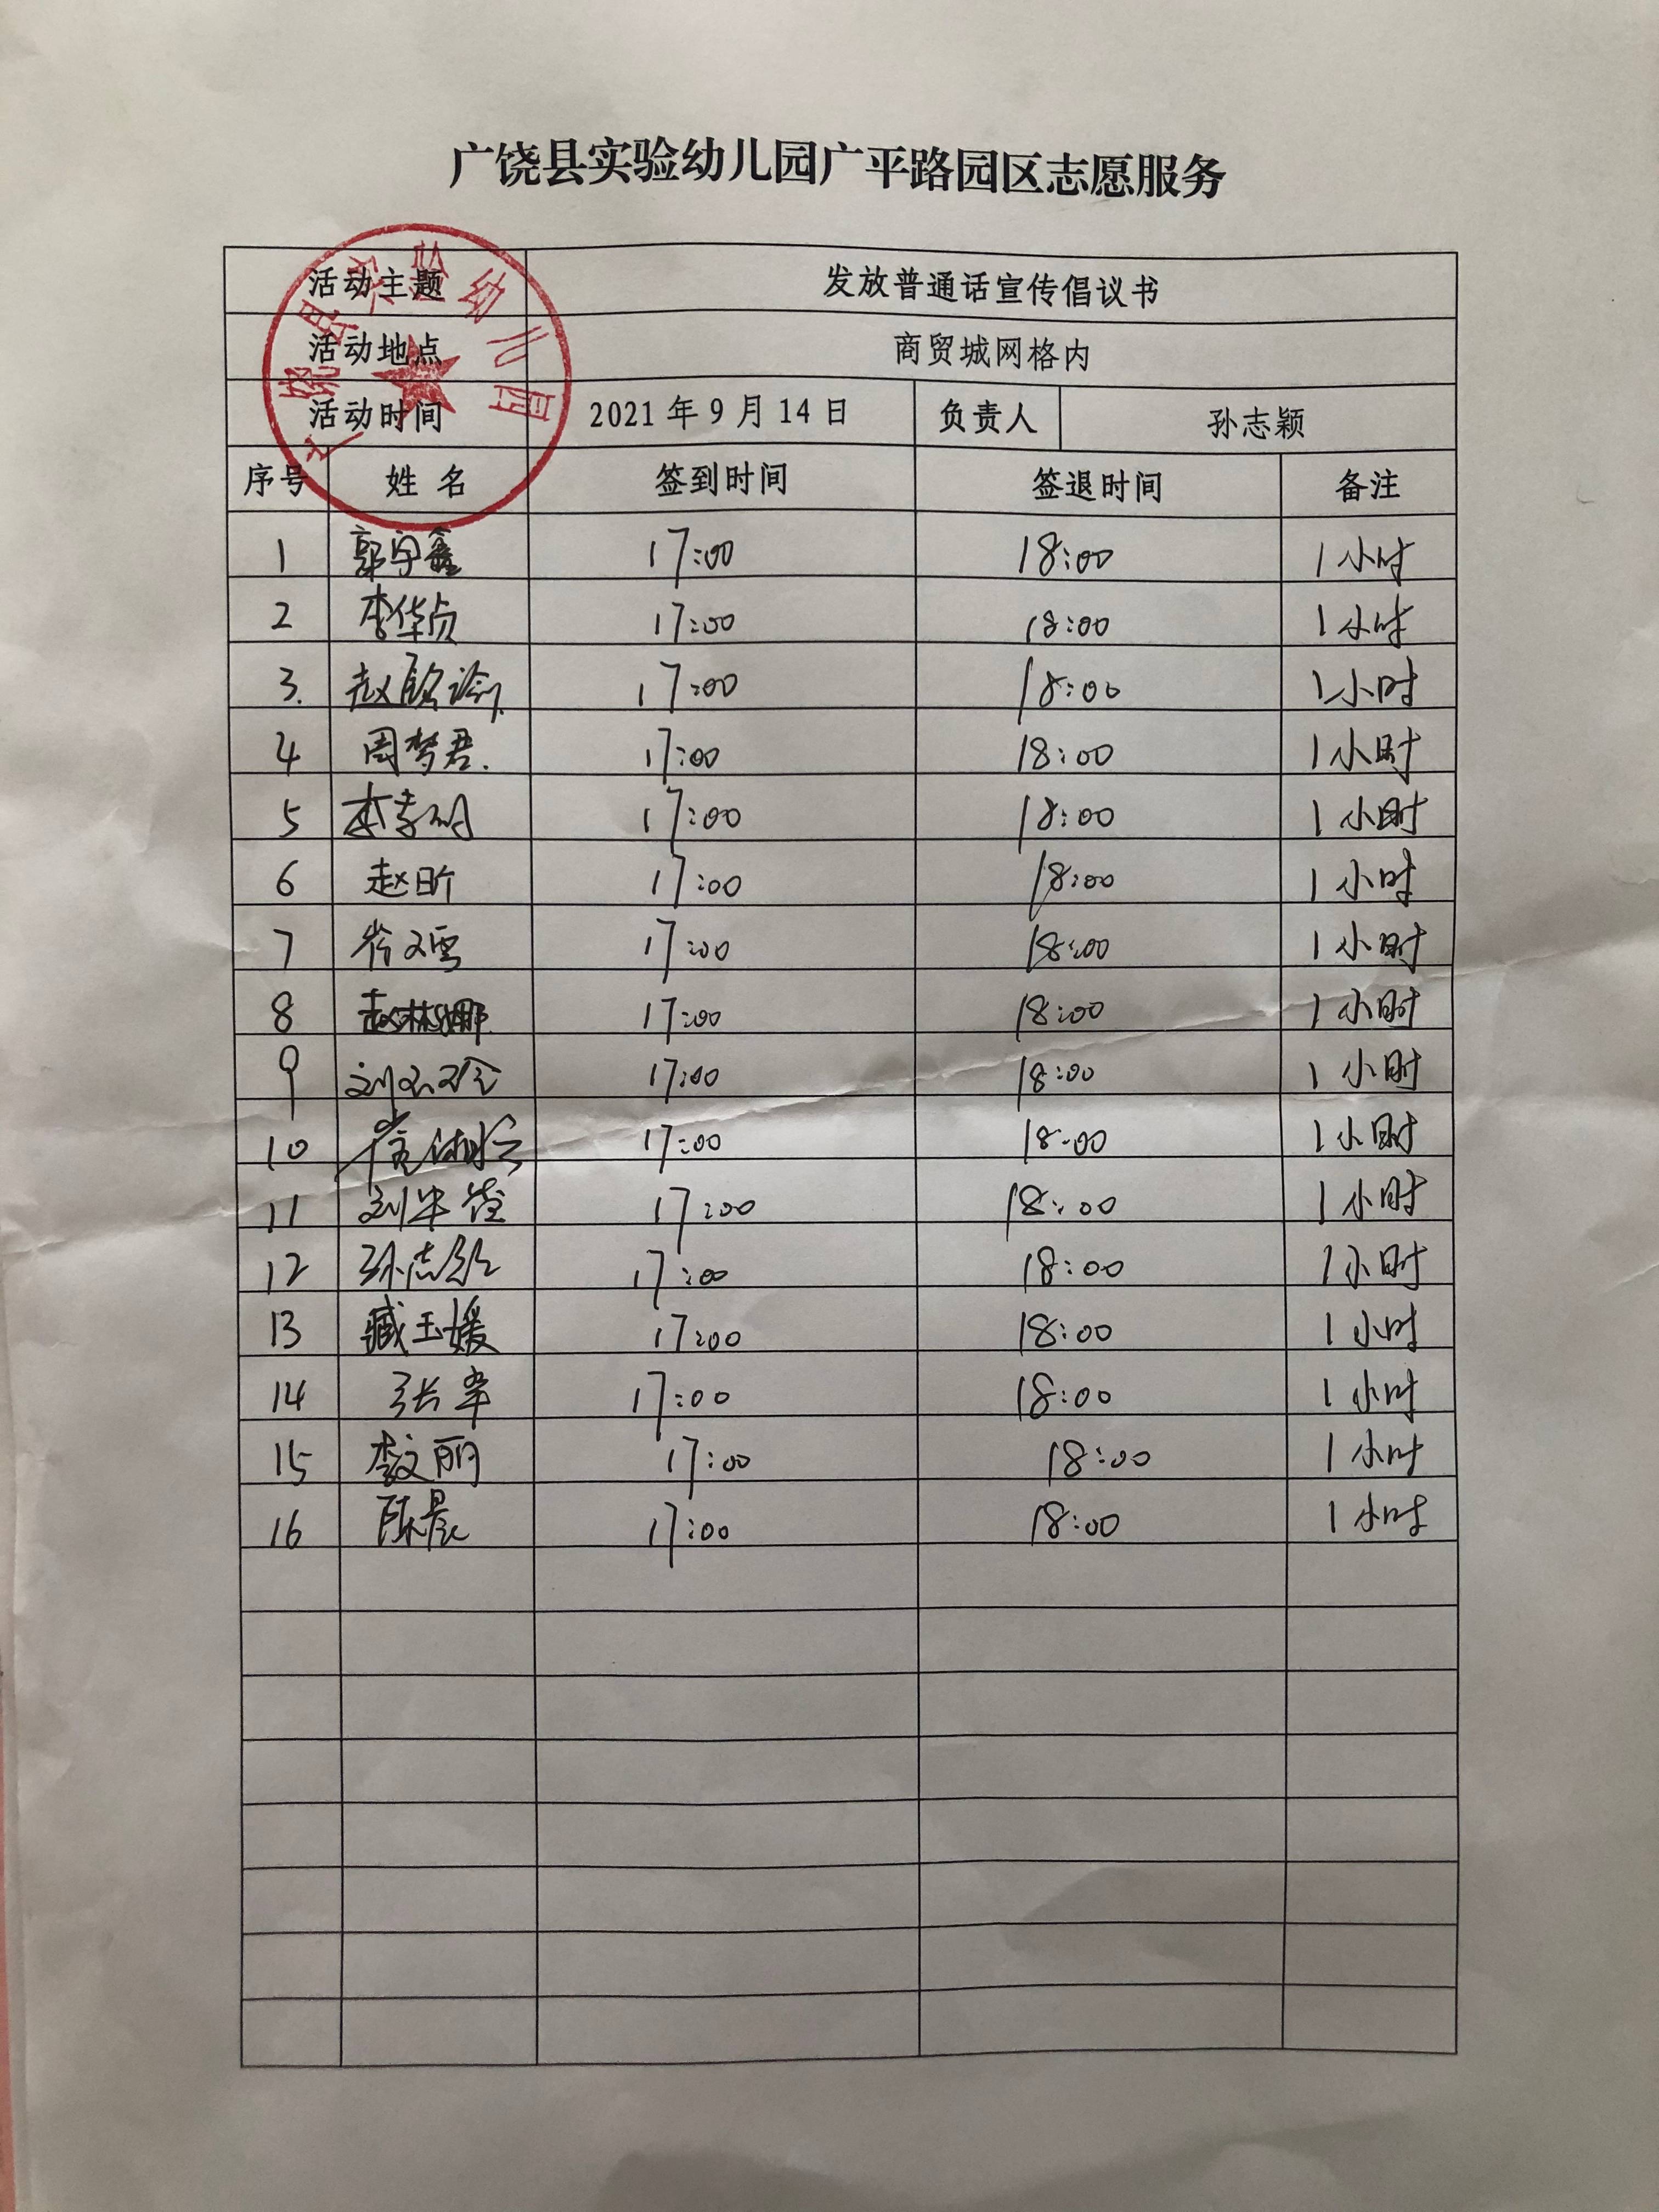 广饶县实验幼儿园广平路园区志愿服务
广饶县实验幼儿园
活动主题 发放普通话宣传倡议书
活动地点 商贸城网格内
活动时间 2021年9月14日 负责人 孙志颖
序号 姓名 签到时间 签退时间 备注
1 郭宇鑫 17:00 18:00 1小时
2 李华贞 17:00 18:00 1小时
3. 赵 17:00 18:00 1小时
4 周梦君. 17:00 18:00 1小时
5 李 17:00 18:00 1小时
6 赵昕 17:00 18:00 1小时
7 17:00 18:00 1小时
8 赵林娜 17:00 18:00 1小时
9 刘 17:00 18:00 1小时
10 17:00 18:00 1小时
11 刘 17:00 18:00 1小时
12 孙志颖 17:00 18:00 1小时
13 臧玉媛 17:00 18:00 1小时
14 张 17:00 18:00 1小时
15 李文丽 17:00 18:00 1小时
16 陈晨 17:00 18:00 1小时